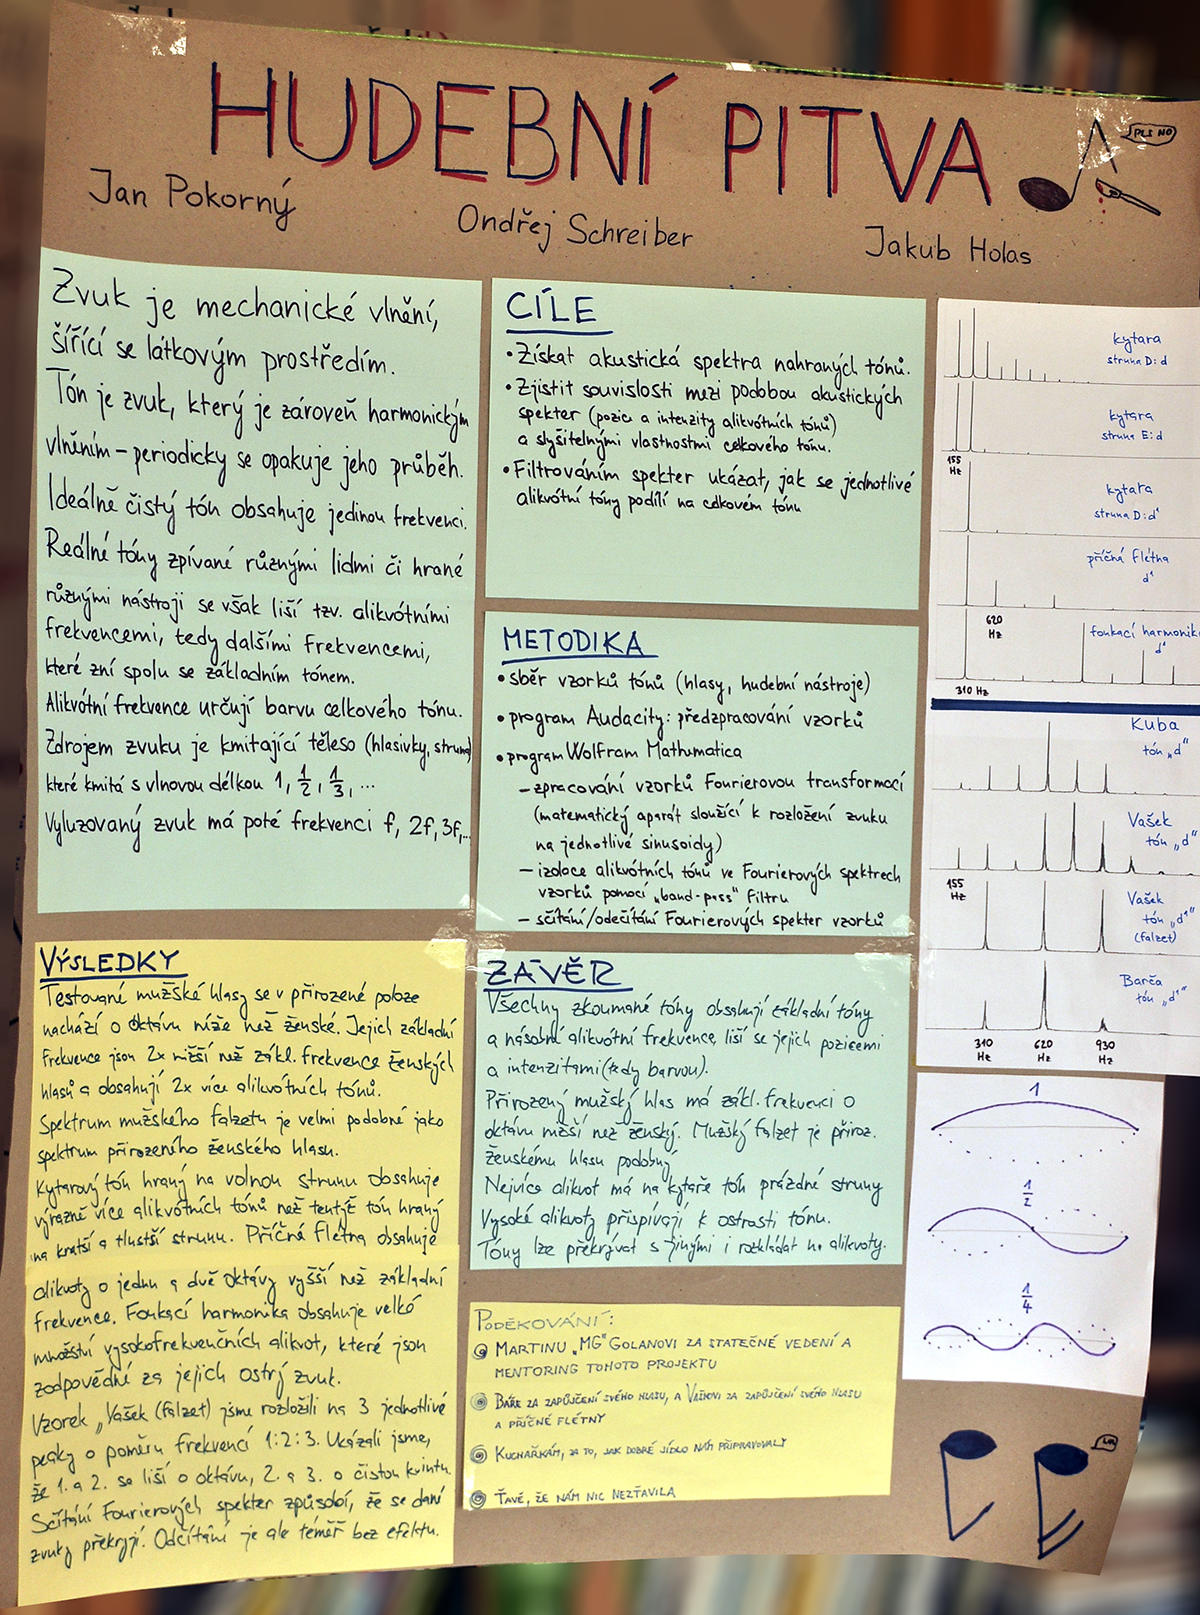 HUDEBNÍ PITVA
PLS NO
Jan Pokorný
Ondřej Schreiber
Jakub Holas
Zvuk je mechanické vlnění,
šířící se látkovým prostředím.
Tón je zvuk, který je zároveň harmonickým
vlněním – periodicky se opakuje jeho průběh.
Ideálně čistý tón obsahuje jedinou frekvenci.
Reálné tóny zpívané různými lidmi či hrané
různými nástroji se však liší tzv. alikvótními
frekvencemi, tedy dalšími frekvencemi,
které zní spolu se základním tónem.
Alikvótní frekvence určují barvu celkového tónu.
Zdrojem zvuku je kmitající těleso (hlasivky, struna)
které kmitá s vlnovou délkou 1, 1/2, 1/3, ...
Vyluzovaný zvuk má poté frekvenci f, 2f, 3f,...
CÍLE
• Získat akustická spektra nahraných tónů.
• Zjistit souvislosti mezi podobou akustických
spekter (pozic a intenzity alikvótních tónů)
a slyšitelnými vlastnostmi celkového tónu.
• Filtrováním spekter ukázat, jak se jednotlivé
alikvótní tóny podílí na celkovém tónu
METODIKA
• sběr vzorků tónů (hlasy, hudební nástroje)
• program Audacity: předzpracování vzorků
• program Wolfram Mathematica
– zpracování vzorků Fourierovou transformací
(matematický aparát sloužící k rozložení zvuku
na jednotlivé sinusoidy)
– izolace alikvótních tónů ve Fourierových spektrech
vzorků pomocí „band-pass" filtru
– sčítání/odečítání Fourierových spekter vzorků
VÝSLEDKY
Testované mužské hlasy se v přirozené poloze
nachází o oktávu níže než ženské. Jejich základní
frekvence jsou 2x nižší než zákl. frekvence ženských
hlasů a obsahují 2x více alikvótních tónů.
Spektrum mužského falzetu je velmi podobné jako
spektrum přirozeného ženského hlasu.
Kytarový tón hraný na volnou strunu obsahuje
výrazně více alikvótních tónů než tentýž tón hraný
na kratší a tlustší strunu. Příčná flétna obsahuje
alikvoty o jednu a dvě oktávy vyšší než základní
frekvence. Foukací harmonika obsahuje velké
množství vysokofrekvenčních alikvot, které jsou
zodpovědné za jejich ostrý zvuk.
Vzorek „Vašek (falzet) jsme rozložili na 3 jednotlivé
peaky o poměru frekvencí 1:2:3. Ukázali jsme,
že 1. a 2. se liší o oktávu, 2. a 3. o čistou kvintu.
Sčítání Fourierových spekter způsobí, že se dané
zvuky překryjí. Odčítání je ale téměř bez efektu.
ZÁVĚR
Všechny zkoumané tóny obsahují základní tóny
a násobné alikvótní frekvence, liší se jejich pozicemi
a intenzitami (tedy barvou).
Přirozený mužský hlas má zákl. frekvenci o
oktávu nižší než ženský. Mužský falzet je přiroz.
ženskému hlasu podobný
Nejvíce alikvot má na kytaře tón prázdné struny
Vysoké alikvoty přispívají k ostrosti tónu.
Tóny lze překrývat s jinými i rozkládat na alikvoty.
PODĚKOVÁNÍ:
MARTINU „MG" GOLANOVI ZA STATEČNÉ VEDENÍ A
MENTORING TOHOTO PROJEKTU
BÁŘE ZA ZAPŮJČENÍ SVÉHO HLASU, A VAŠKOVI ZA ZAPŮJČENÍ SVÉHO HLASU
A PŘÍČNÉ FLÉTNY
KUCHAŘKÁM, ZA TO, JAK DOBRÉ JÍDLO NÁM PŘIPRAVOVALY
ŤAVĚ, ŽE NÁM NIC NEZŤAVILA
kytara
struna D: d
kytara
struna E: d
155
Hz
kytara
struna D: d¹
příčná flétna
d¹
620
Hz
foukací harmonika
d¹
310 Hz
Kuba
tón „d"
Vašek
tón „d"
155
Hz
Vašek
tón „d¹"
(falzet)
Barča
tón „d¹"
310
Hz
620
Hz
930
Hz
1
1/2
1/4